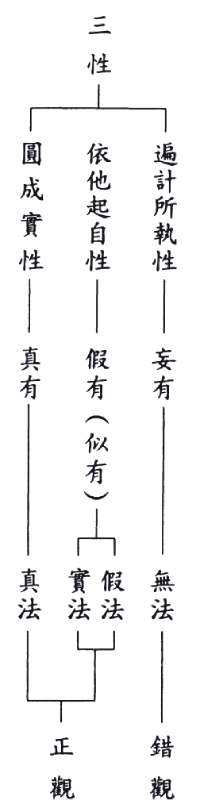 三性
遍計所執性
依他起自性
圓成實性
妄有
假有（似有）
真有
無法
假法
實法
真法
錯觀
正觀